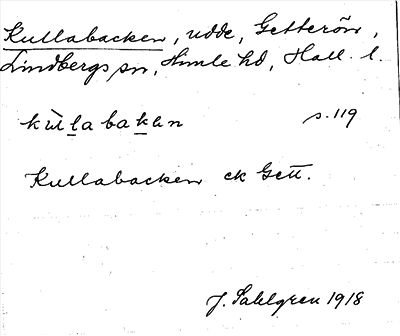 Kullabacken, udde, Getterön,
Lindbergs sn, Himle hd, Hall. l.
kùlabakan s. 119
Kullabacken ek Gett.
J. Sahlgren 1918